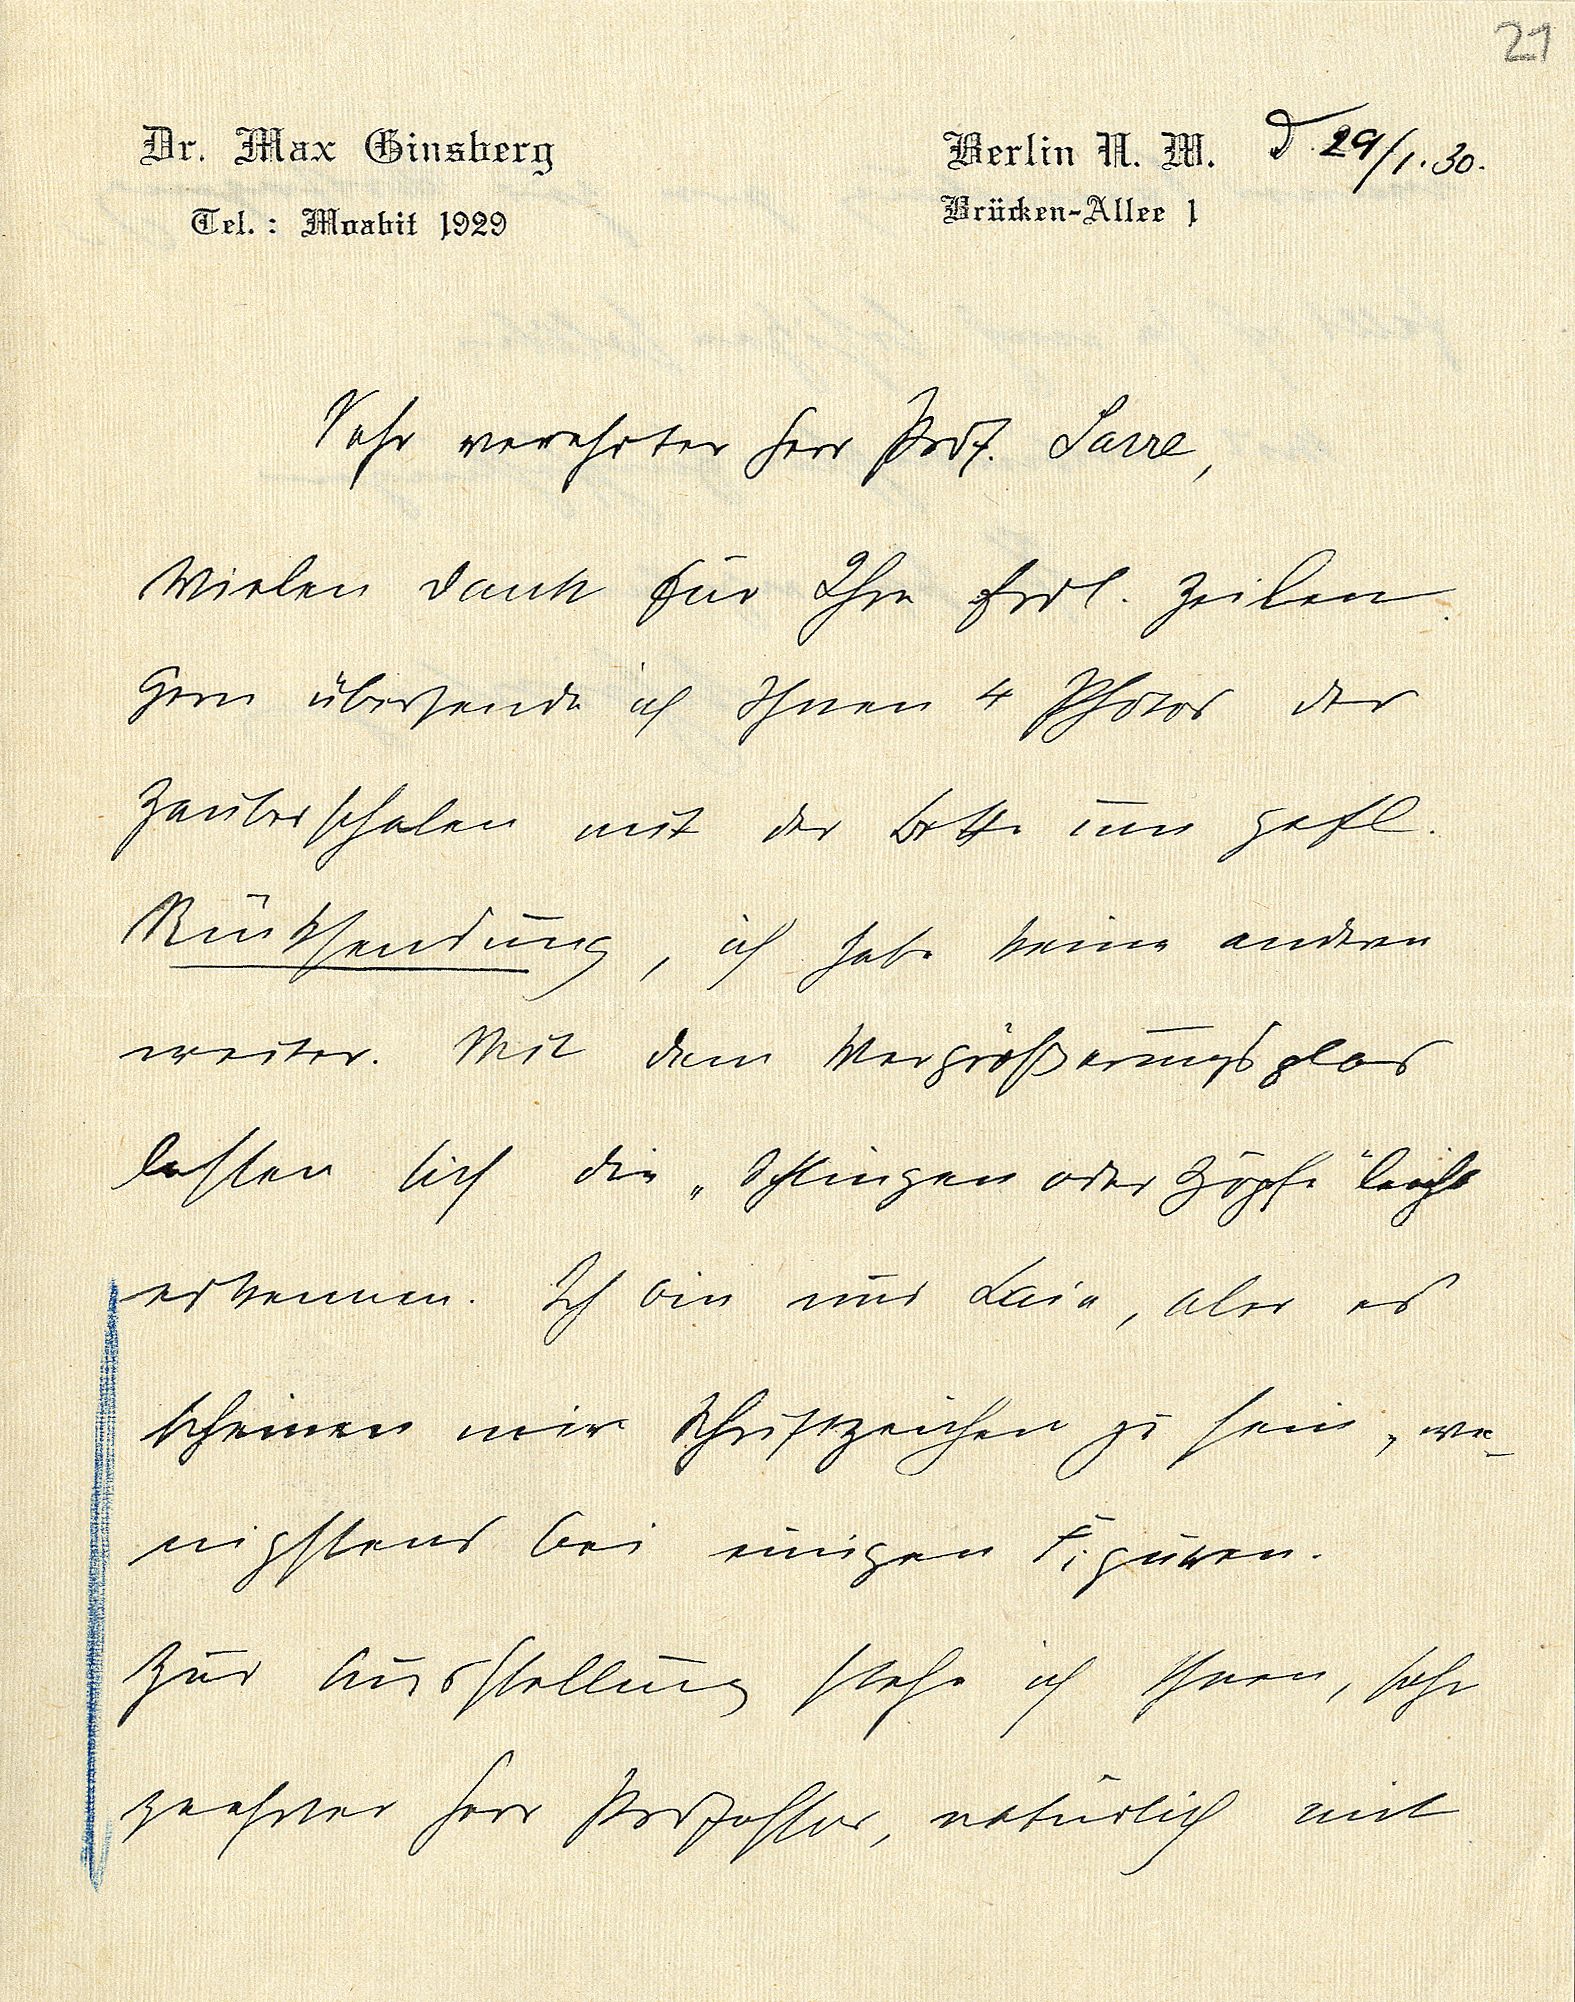 21
Dr. Max Ginsberg
Tel.: Moabit 1929
Berlin N. W. d. 29/1.30.
Brücken-Allee 1
Sehr verehrter Herr Prof. Sarre,
Vielen Dank für Ihre frdl. Zeilen.
Gern übersende ich Ihnen 4 Photos der
Zauberschalen mit der Bitte um gefl.
Rücksendung, ich habe keine anderen
weiter. Mit dem Vergrößerungsglas
lassen sich die „Schlingen oder Zöpfe" leicht
erkennen. Ich bin nur Laie, aber es
scheinen mir Schriftzeichen zu sein, we-
nigstens bei einigen Figuren.
Zur Ausstellung stehe ich Ihnen, sehr
geehrter Herr Professor, natürlich mit